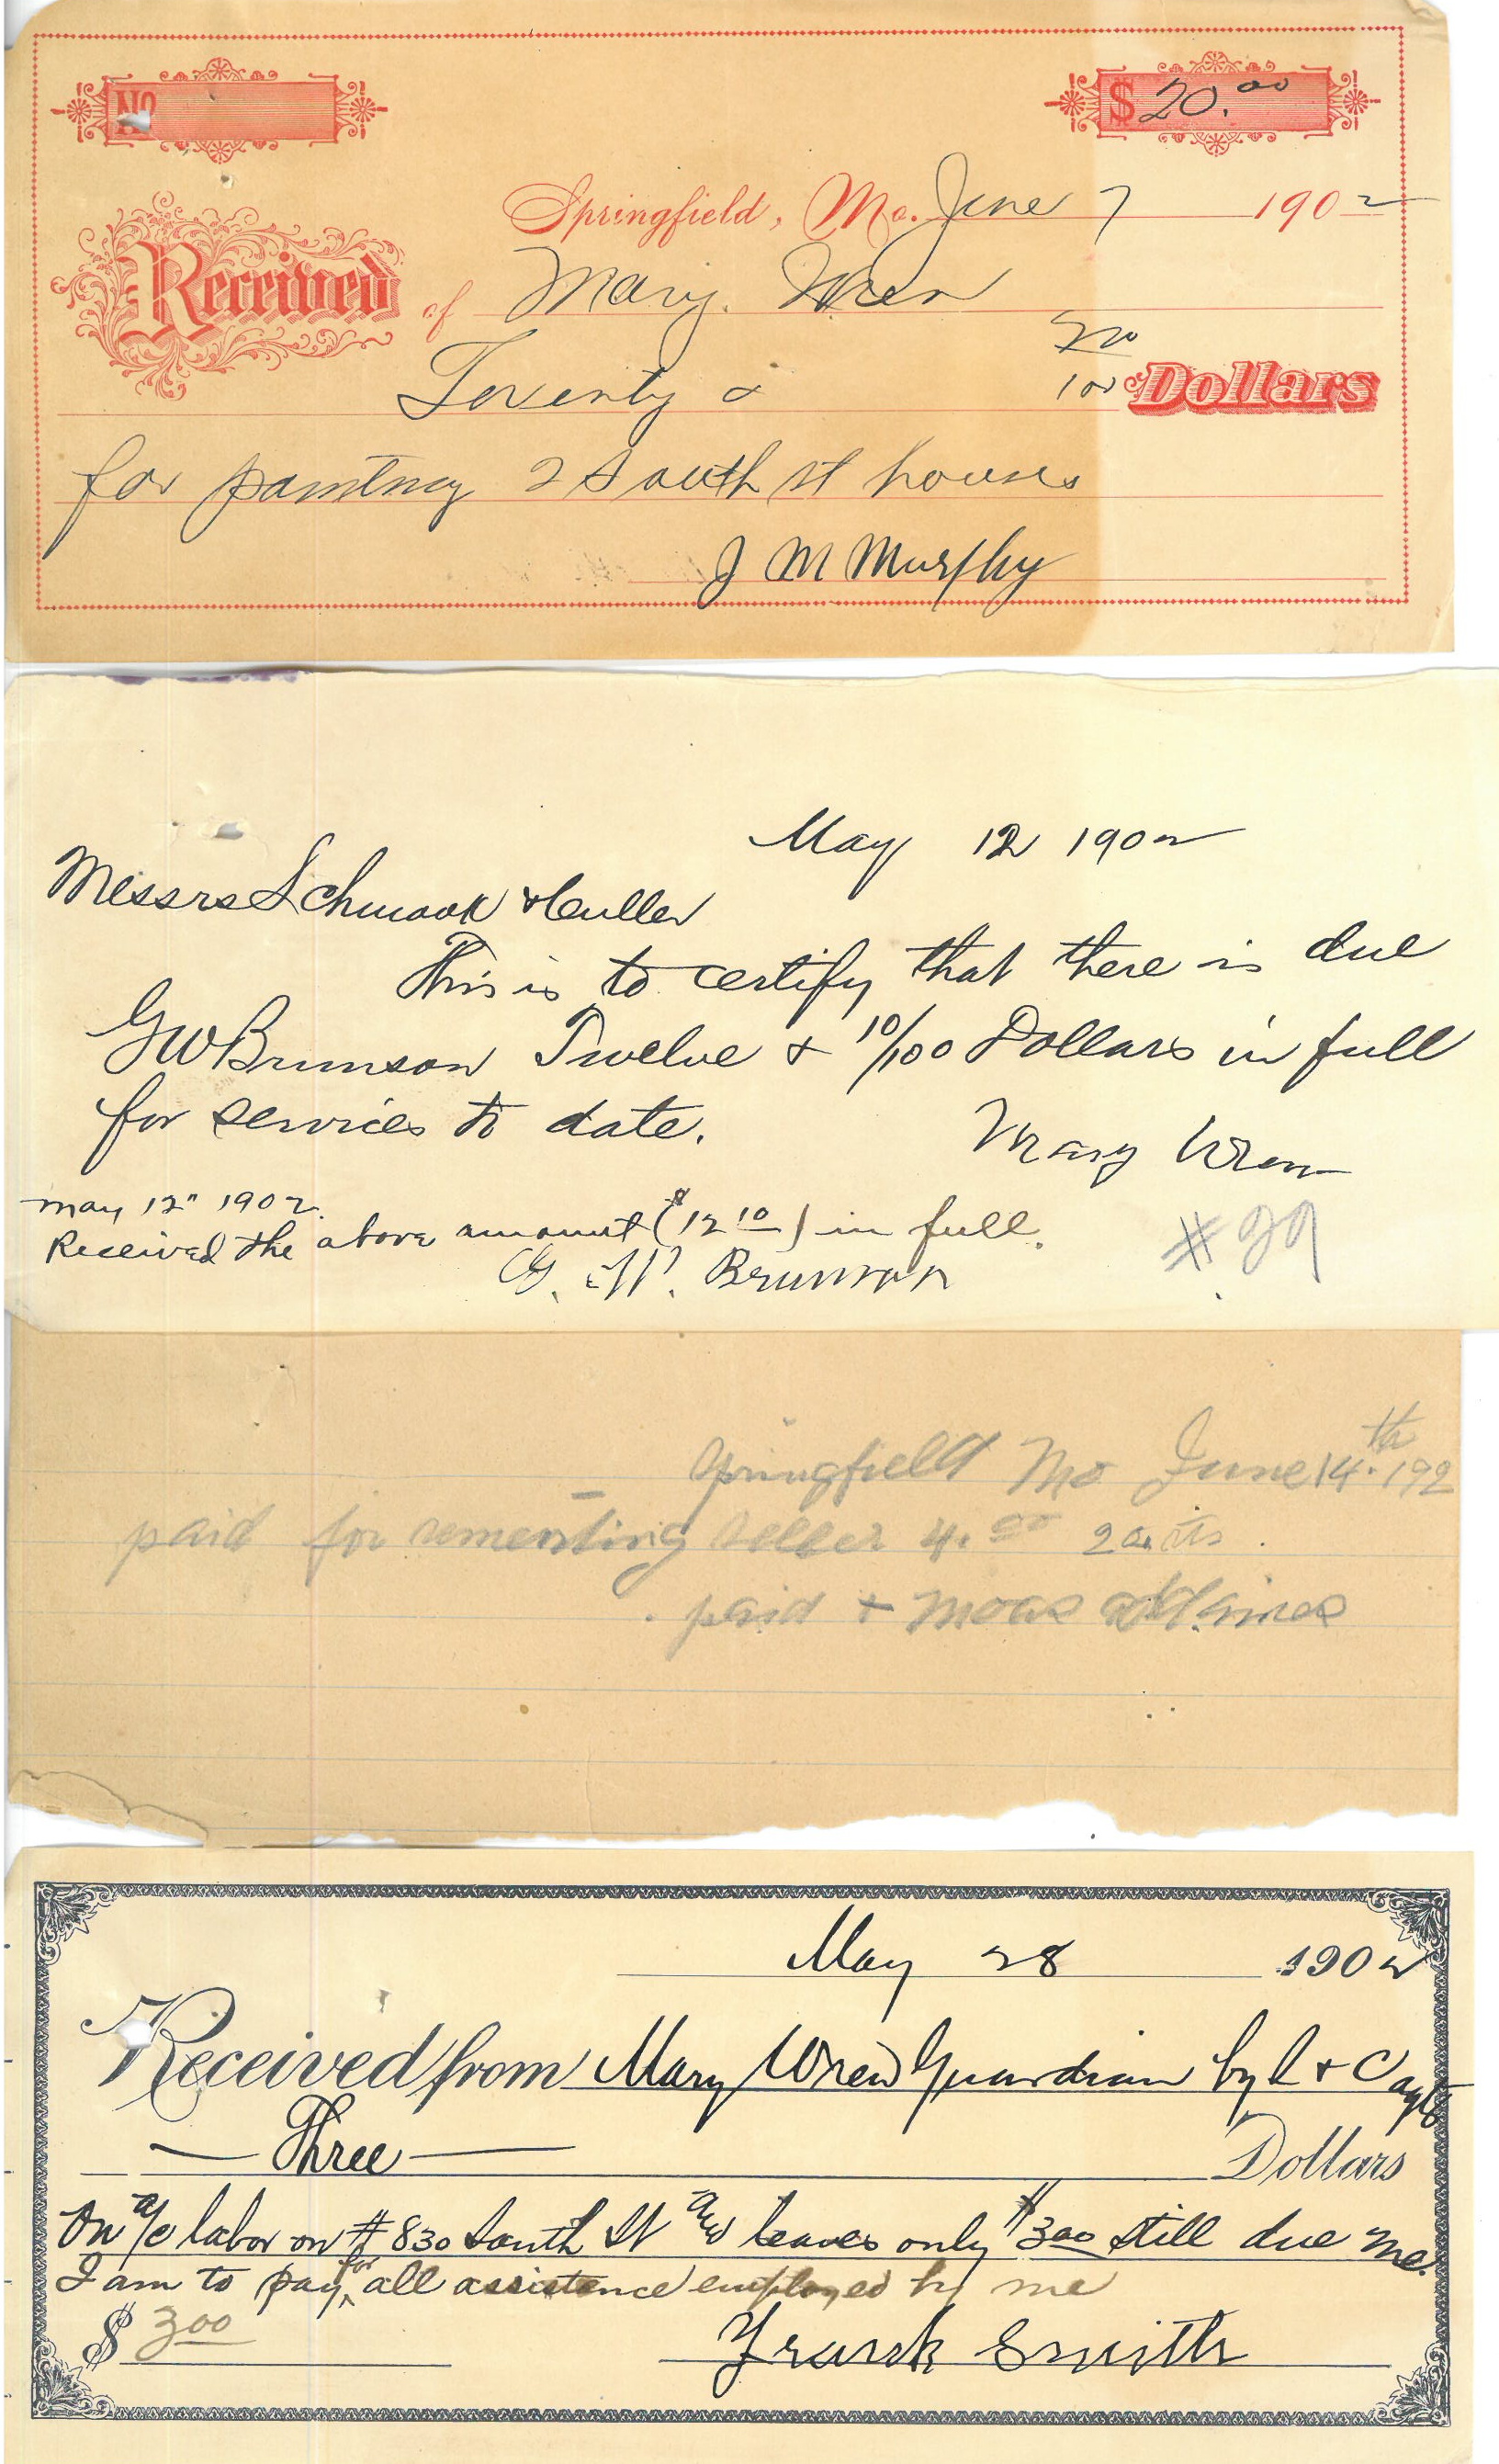 No
$ 20.00
Springfield, Mo. June 7 1902
Received of Mary Wren
Twenty & no/100 Dollars
for painting 2 South st houses
J M Murphy
May 12 1902
Messrs Schmook & Culler
This is to certify that there is due
G W Brunson Twelve & 10/100 Dollars in full
for services to date.
Mary Wren
May 12" 1902.
Received the above amount ($12 10) in full.
G. W. Brunson
#29
Springfield Mo June 14.th 192
paid for sementing seller 4.00
paid + Moas
May 28 1902
Received from Mary Wren Guardian by S & C agts
Three Dollars
On a/c labor on #830 South St leaves only $3 00 still due me.
I am to pay for all assistence employed by me
$ 3 00
Frank Smith